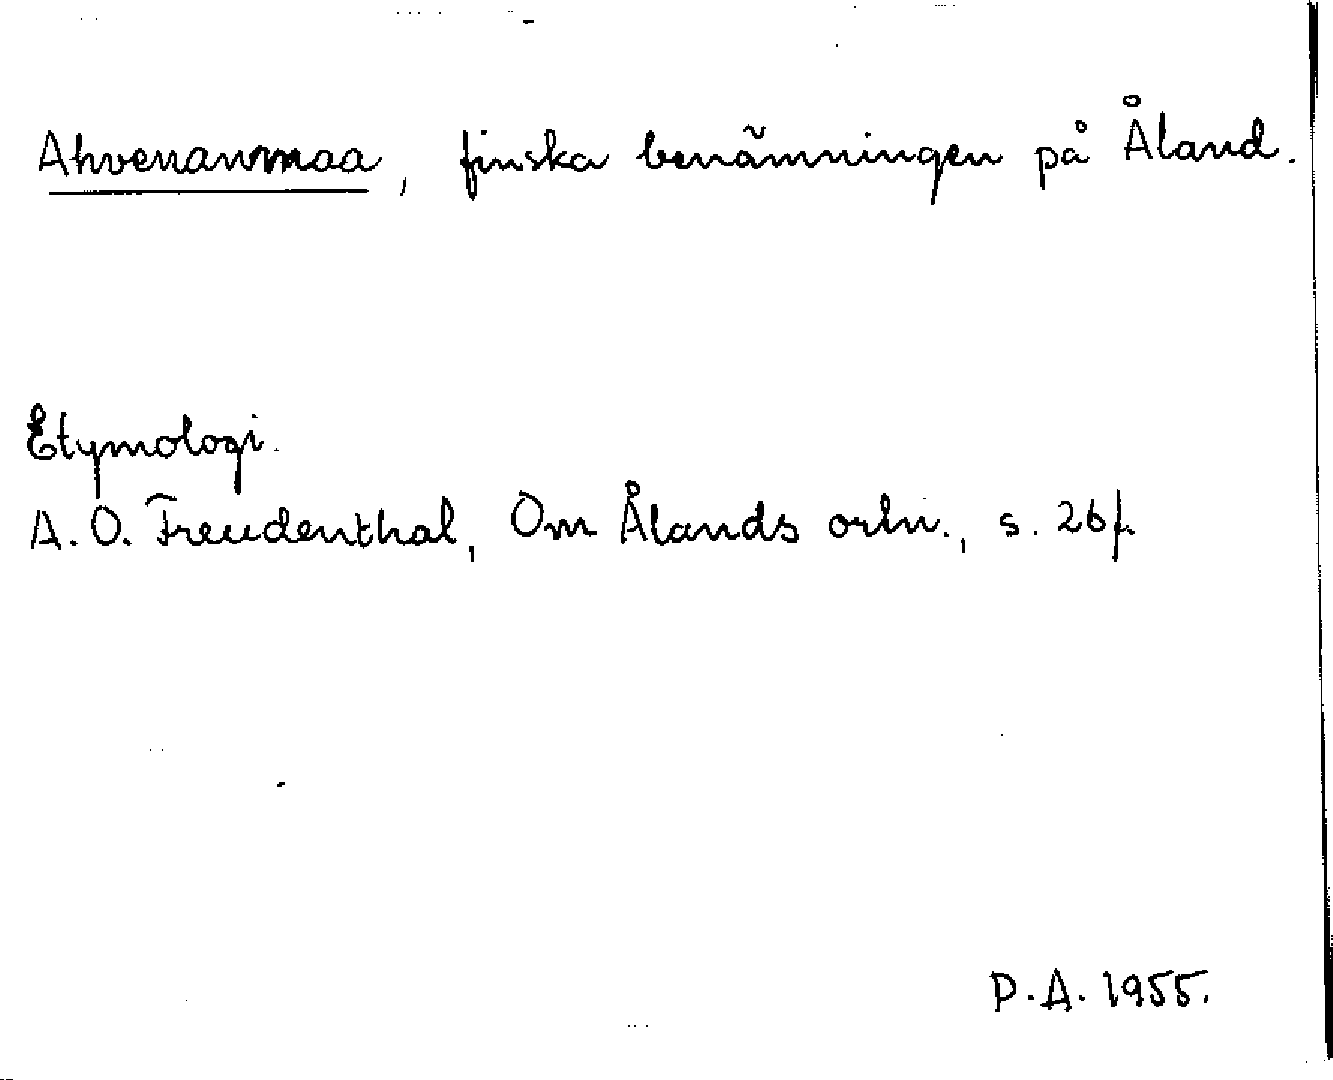 Ahvenanmaa, finska benämningen på Åland.
Etymologi.
A. O. Freudenthal, Om Ålands ortn., s. 26 f.
P.A. 1955.